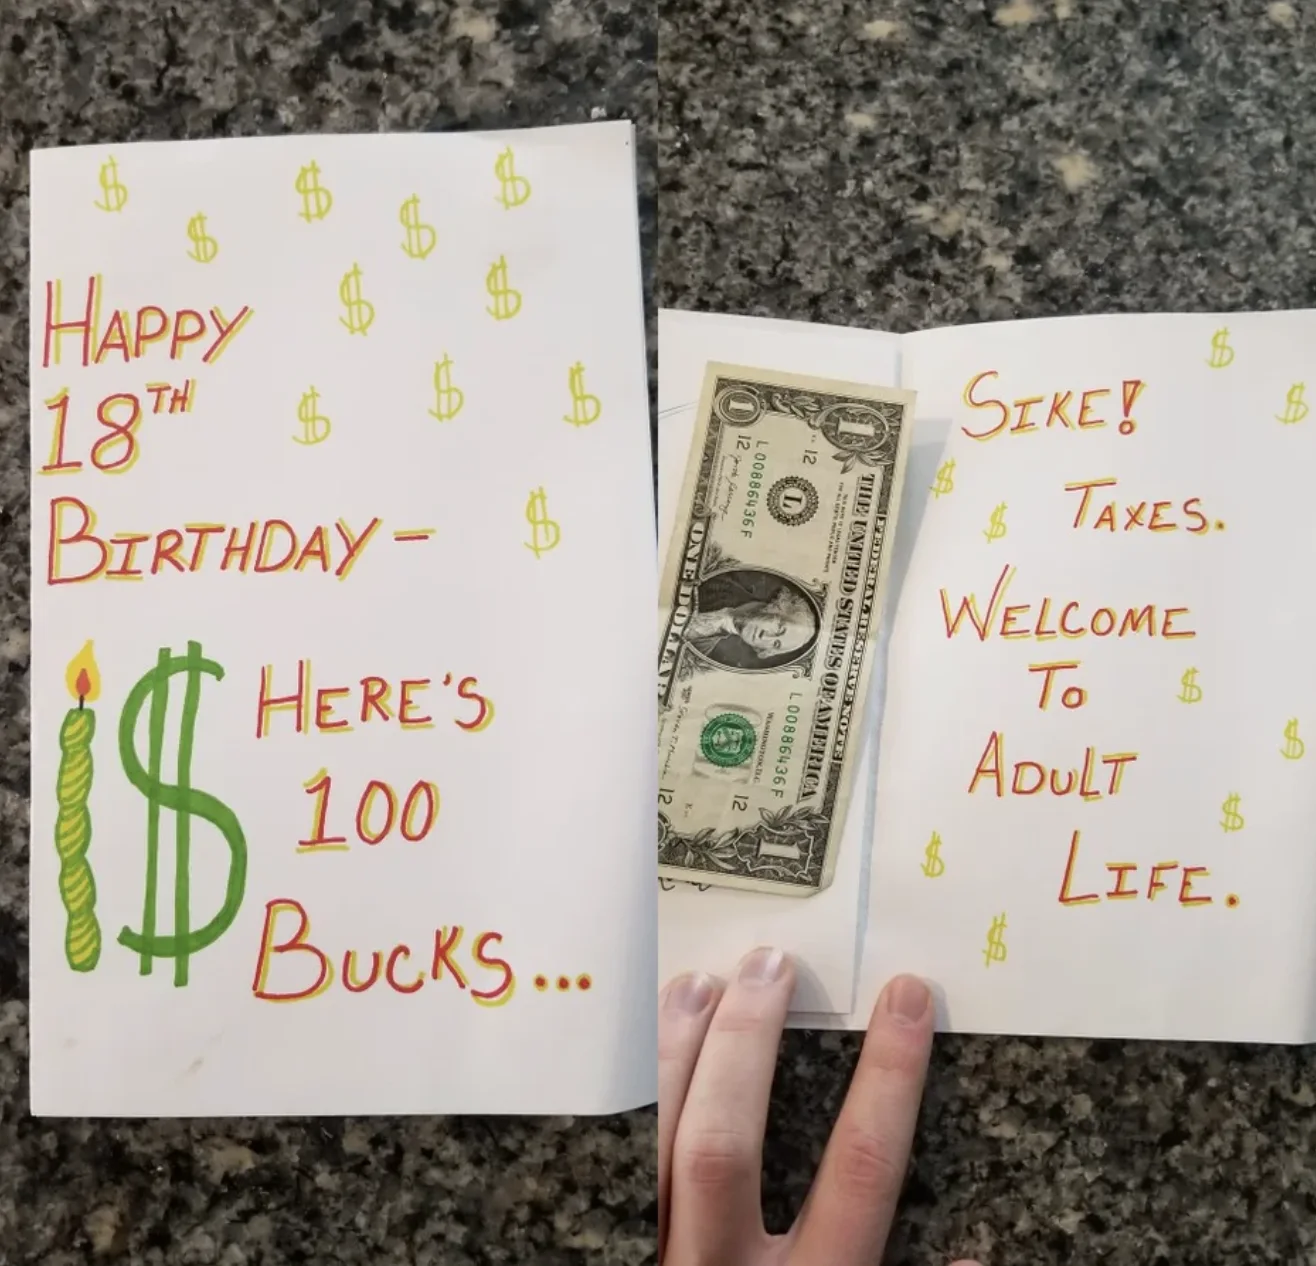 HAPPY
18TH
BIRTHDAY -
HERE'S
100
BUCKS...
$
SIKE!
TAXES.
WELCOME
TO
ADULT
LIFE.
FEDERAL RESERVE NOTE
THE UNITED STATES OF AMERICA
L 00886436 F
12
L
WASHINGTON, D.C.
L 00886436 F
12
ONE DOLLAR
1